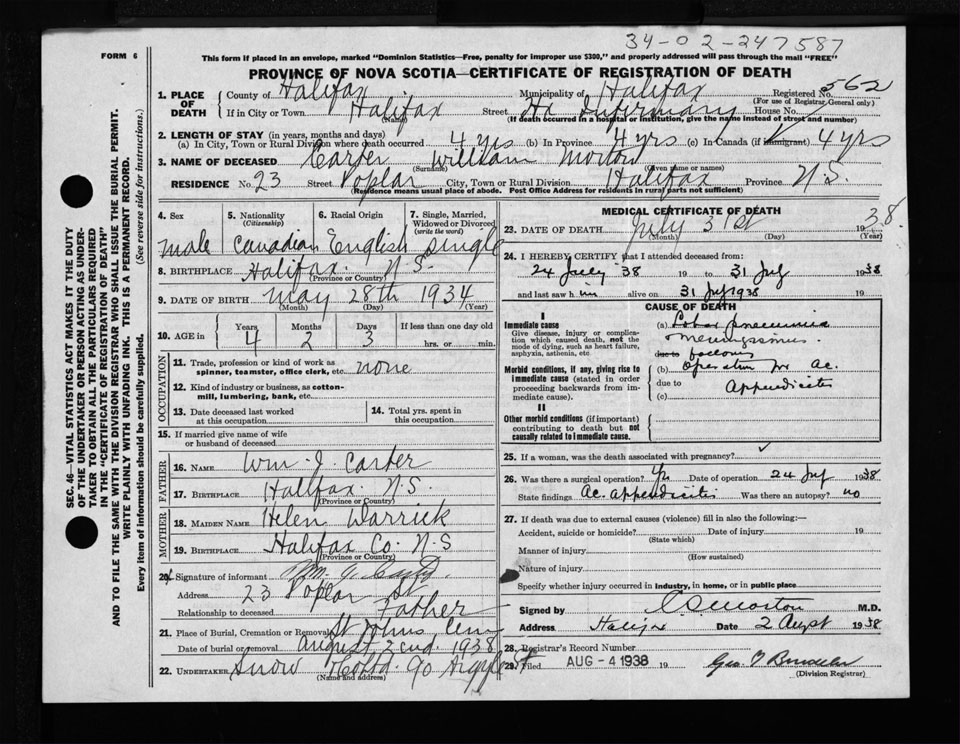 34-02-247587
FORM 6
This form if placed in an envelope, marked "Dominion Statistics—Free, penalty for improper use $300," and properly addressed will pass through the mail "FREE"
PROVINCE OF NOVA SCOTIA—CERTIFICATE OF REGISTRATION OF DEATH
1. PLACE OF DEATH
County of Halifax Municipality of Halifax Registered No. 562
(For use of Registrar General only)
If in City or Town Halifax Street Hx Infirmary House No.
(Name) (If death occurred in a hospital or institution, give the name instead of street and number)
2. LENGTH OF STAY (in years, months and days)
(a) In City, Town or Rural Division where death occurred 4 yrs (b) In Province 4 yrs (c) In Canada (if immigrant) 4 yrs
3. NAME OF DECEASED Carter William Morton
(Surname) (Given name or names)
RESIDENCE No. 23 Street Poplar City, Town or Rural Division Halifax Province N.S.
(Residence means usual place of abode. Post Office Address for residents in rural parts not sufficient)
4. Sex 5. Nationality (Citizenship) 6. Racial Origin 7. Single, Married, Widowed or Divorced (write the word)
male Canadian English single
8. BIRTHPLACE Halifax N.S.
(Province or Country)
9. DATE OF BIRTH May 28th 1934
(Month) (Day) (Year)
10. AGE in Years Months Days If less than one day old
4 2 3 hrs. or min.
OCCUPATION
11. Trade, profession or kind of work as spinner, teamster, office clerk, etc. none
12. Kind of industry or business, as cotton-mill, lumbering, bank, etc.
13. Date deceased last worked at this occupation
14. Total yrs. spent in this occupation
15. If married give name of wife or husband of deceased
FATHER
16. NAME Wm. J. Carter
17. BIRTHPLACE Halifax N.S.
(Province or Country)
MOTHER
18. MAIDEN NAME Helen Warrick
19. BIRTHPLACE Halifax Co. N.S
(Province or Country)
20. Signature of informant Wm. J. Carter
Address 23 Poplar St
Relationship to deceased Father
21. Place of Burial, Cremation or Removal St Johns Cem
Date of burial or removal August, 2nd. 1938
22. UNDERTAKER Snow & Co Ltd. 90 Argyle St
(Name and address)
MEDICAL CERTIFICATE OF DEATH
23. DATE OF DEATH July 31st 1938
(Month) (Day) (Year)
24. I HEREBY CERTIFY that I attended deceased from:
24 July '38 19 to 31 July 1938
and last saw him alive on 31 July 1938 19
CAUSE OF DEATH
I
Immediate cause
Give disease, injury or complication which caused death, not the mode of dying, such as heart failure, asphyxia, asthenia, etc
(a) Lobar pneumonia
due to following
Morbid conditions, if any, giving rise to immediate cause (stated in order proceeding backwards from immediate cause).
(b) operation for Ac.
due to Appendicitis
(c)
II
Other morbid conditions (if important) contributing to death but not causally related to immediate cause.
25. If a woman, was the death associated with pregnancy?
26. Was there a surgical operation? Yes Date of operation 24 July 1938
State findings Ac. appendicitis Was there an autopsy? no
27. If death was due to external causes (violence) fill in also the following:
Accident, suicide or homicide? Date of injury 19
(State which)
Manner of injury
(How sustained)
Nature of injury
Specify whether injury occurred in industry, in home, or in public place
Signed by C S Morton M.D.
Address Halifax Date 2 August 1938
28. Registrar's Record Number
29. Filed AUG - 4 1938
(Division Registrar)
SEC. 46—VITAL STATISTICS ACT MAKES IT THE DUTY OF THE UNDERTAKER OR PERSON ACTING AS UNDERTAKER TO OBTAIN ALL THE PARTICULARS REQUIRED IN THE "CERTIFICATE OF REGISTRATION OF DEATH" AND TO FILE THE SAME WITH THE DIVISION REGISTRAR WHO SHALL ISSUE THE BURIAL PERMIT.
WRITE PLAINLY WITH UNFADING INK. THIS IS A PERMANENT RECORD.
Every item of information should be carefully supplied. (See reverse side for instructions.)